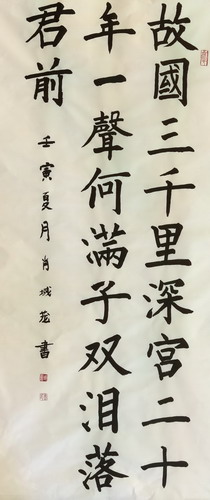 故國三千里深宮二十
年一聲何滿子双泪落
君前
壬寅夏月肖城蒞書